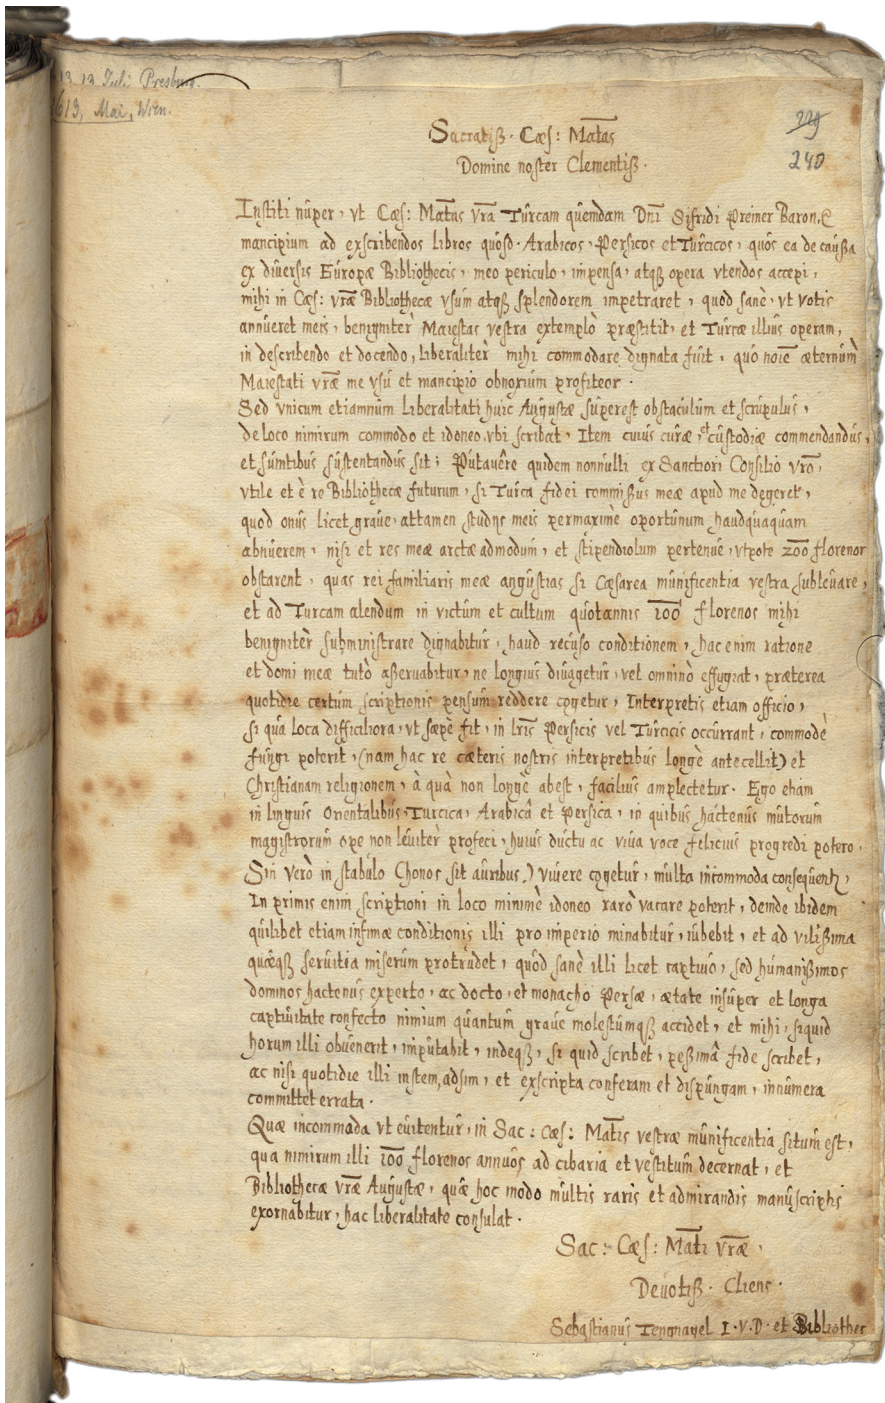 13 Juli Presburg.
1613, Mai, Wien.
229
240
Sacratiß. Cæs: Matas
Domine noster Clementiß.
Institi nuper, vt Cæs: Matas vra Turcam quemdam Dni Sifridi Preiner Baron. &
mancipium ad exscribendos libros quosd. Arabicos, Persicos et Turcicos, quos ea de caußa
ex diuersis Europæ Bibliothecis, meo periculo, impensa, atqß opera vtendos accepi,
mihi in Cæs: vræ Bibliothecæ vsum atqß splendorem impetraret, quod sanè, vt votis
annueret meis, benigniter Maiestas vestra extemplò præstitit, et Turcæ illius operam,
in describendo et docendo, liberaliter mihi commodare dignata fuit, quo noie æternum
Maiestati vræ me vsu et mancipio obnoxium profiteor.
Sed vnicum etiamnum liberalitati huic Augustæ superest obstaculum et scrupulus,
de loco nimirum commodo et idoneo, vbi scribat, Item cuius curæ, et custodiæ commendandus,
et sumtibus sustentandus sit; Putauêre quidem nonnulli ex Sanctiori Consilio vro,
vtile et è re Bibliothecæ futurum, si Turca fidei commißus meæ apud me degeret,
quod onus licet graue, attamen studijs meis permaximè oportunum haudquaquam
abnuerem, nisi et res meæ arctæ admodum, et stipendiolum pertenue, vtpote 200 florenor
obstarent, quas rei familiaris meæ angustias si Cæsarea munificentia vestra subleuare,
et ad Turcam alendum in victum et cultum quotannis 100 florenos mihi
benigniter subministrare dignabitur, haud recuso conditionem, hac enim ratione
et domi meæ tutò aßeruabitur, ne longius diuagetur, vel omninò effugiat, præterea
quotidie certum scriptionis pensum reddere cogetur, Interpretis etiam officio,
si qua loca difficiliora, vt sæpè fit, in lris Persicis vel Turcicis occurrant, commodè
fungi poterit, (nam hac re cæteris nostris interpretibus longè antecellit) et
Christianam religionem, à quà non longè abest, facilius amplectetur. Ego etiam
in linguis Orientalibus, Turcica, Arabicâ et Persica, in quibus hactenus mutorum
magistrorum ope non leuiter profeci, huius ductu ac viua voce felicius progredi potero.
Sin verò in stabulo (honos sit auribus,) viuere cogetur, multa incommoda consequentr,
In primis enim scriptioni in loco minimè idoneo rarò vacare poterit, deinde ibidem
quilibet etiam infimæ conditionis illi pro imperio minabitur, iubebit, et ad vilißima
quæqß seruitia miserum protrudet, quod sanè illi licet captiuo, sed humanißimos
dominos hactenus experto, ac docto, et monacho Persæ, ætate insuper et longa
captiuitate confecto nimium quantum graue molestumqß accidet, et mihi, siquid
horum illi obuenerit, imputabit, indeqß, si quid scribet, peßimâ fide scribet,
ac nisi quotidie illi instem, adsim, et exscripta conferam et dispungam, innumera
committet errata.
Quæ incommoda vt euitentur, in Sac: Cæs: Matis vestræ munificentia situm est,
qua nimirum illi 100 florenos annuos ad cibaria et vestitum decernat, et
Bibliothecæ vræ Augustæ, quæ hoc modo multis raris et admirandis manuscriptis
exornabitur, hac liberalitate consulat.
Sac: Cæs: Mati vræ.
Deuotiß. Cliens.
Sebastianus Tengnagel I.V.D. et Bibliother